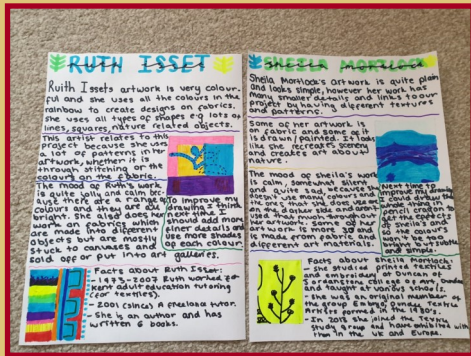 RUTH ISSET
Ruth Issets artwork is very colour-
ful and she uses all the colours in the
rainbow to create designs on fabrics.
She uses all types of shapes e.g lots of
lines, squares, nature related objects.
This artist relates to this
project because she uses
a lot of patterns in her
artwork, whether it is
through stitching or the
colours on the fabric.
The mood of Ruth's work
is quite jolly and calm bec-
ause there are a range of
colours and they are all
bright. She also does her
work on fabrics which
are made into different
objects but are mostly
stuck to canvases and
sold off or put into art galleries.
To improve my
drawing I think
next time I
should add more
finer details and
use more shades
of each colour.
Facts about Ruth Isset:
- 1973-2007 Ruth worked for
Kent adult education tutoring
(for textiles).
- 2001 (since) A freelance tutor.
- She is an author and has
written 6 books.
SHEILA MORTLOCK
Sheila Mortlock's Artwork is quite plain
and looks simple, however her work has
many smaller details and links to our
project by having different textures
and patterns.
Some of her artwork is
on fabric and some of it
is drawn / painted. It looks
like she recreates scenery
and creates art about
nature.
The mood of sheila's work
is calm, somewhat silent
and quite sad because she
doesn't use many colours and
the ones that she does use are
on the darker side and aren't
used that much throughout
her artwork. Some of her
art work is more 3D and
is made from fabric and
different art materials.
Next time to
improve my drawing
I could draw the
whole thing in
pencil crayons to
get the effects
of Sheila's work
so the colours
won't be too
bright but subtle
and simple.
Facts about Sheila Mortlock:
- She studied printed textiles
and embroidery at Duncan of
Jordanstone college of Art, Dundee
and taught at various schools.
- She was an original member of
the group Embryo, Dundee, Textile
Artists formed in the 1980's.
- In 2013 she joined the Textile
study group and have exhibited with
them in the UK and Europe.